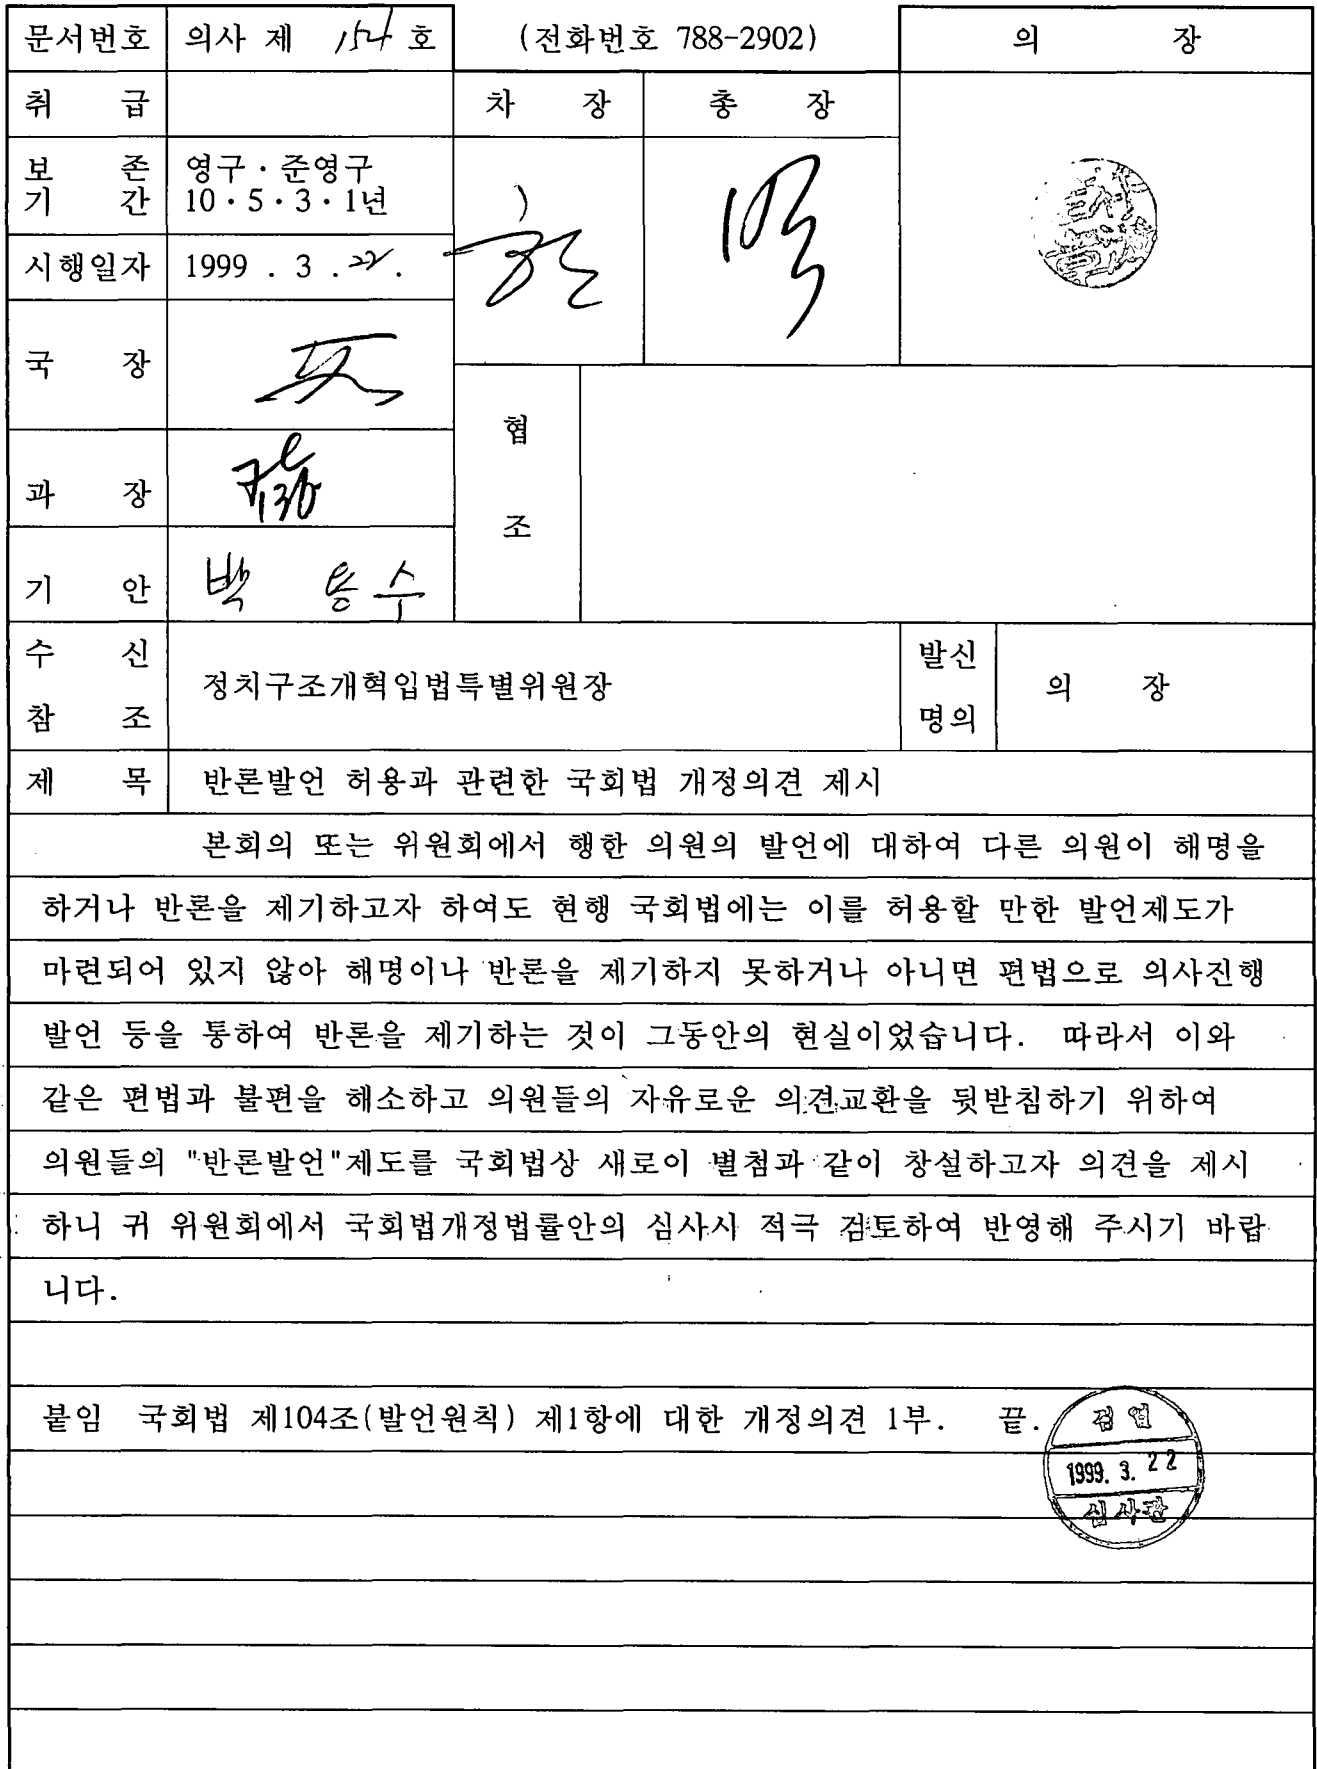 문서번호 의사 제 154 호 (전화번호 788-2902) 의 장
취 급 차 장 총 장
보 존 기 간 영구·준영구
10·5·3·1년
시행일자 1999 . 3 . 22.
국 장
과 장
협 조
기 안 박 용 수
수 신
참 조
정치구조개혁입법특별위원장
발신
명의
의 장
제 목 반론발언 허용과 관련한 국회법 개정의견 제시
본회의 또는 위원회에서 행한 의원의 발언에 대하여 다른 의원이 해명을
하거나 반론을 제기하고자 하여도 현행 국회법에는 이를 허용할 만한 발언제도가
마련되어 있지 않아 해명이나 반론을 제기하지 못하거나 아니면 편법으로 의사진행
발언 등을 통하여 반론을 제기하는 것이 그동안의 현실이었습니다. 따라서 이와
같은 편법과 불편을 해소하고 의원들의 자유로운 의견교환을 뒷받침하기 위하여
의원들의 "반론발언"제도를 국회법상 새로이 별첨과 같이 창설하고자 의견을 제시
하니 귀 위원회에서 국회법개정법률안의 심사시 적극 검토하여 반영해 주시기 바랍
니다.
붙임 국회법 제104조(발언원칙) 제1항에 대한 개정의견 1부. 끝.
검열
1999. 3. 22
심사관